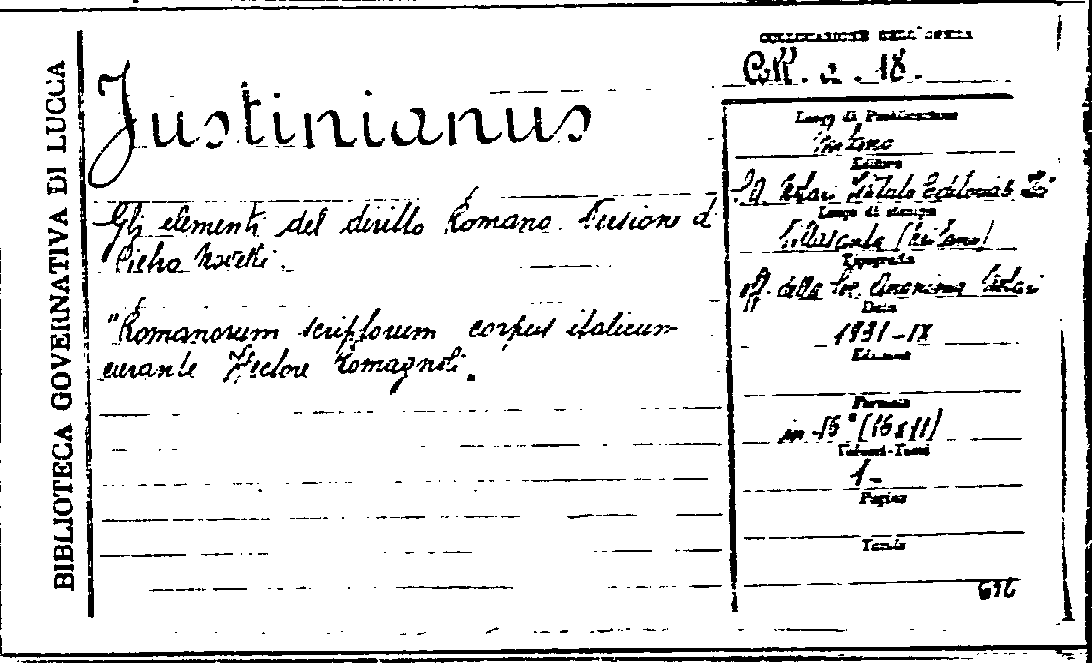 BIBLIOTECA GOVERNATIVA DI LUCCA
Justinianus
Gli elementi del diritto Romano. Versione d
Pietro
"Romanorum scriptorum corpus italicum
curante Hectore Romagnoli.
COLLOCAZIONE DELL'OPERA
Coll. a. 18.
Luogo di Pubblicazione
Milano
Editore
S. A. Notari Istituto Editoriale
Luogo di stampa
Villasanta (Milano)
Tipografia
Off. della Soc. Anonima Notari
Data
1931-IX
Edizione
Formato
in-16° (16x11)
Volumi-Tomi
1-
Pagine
Tavole